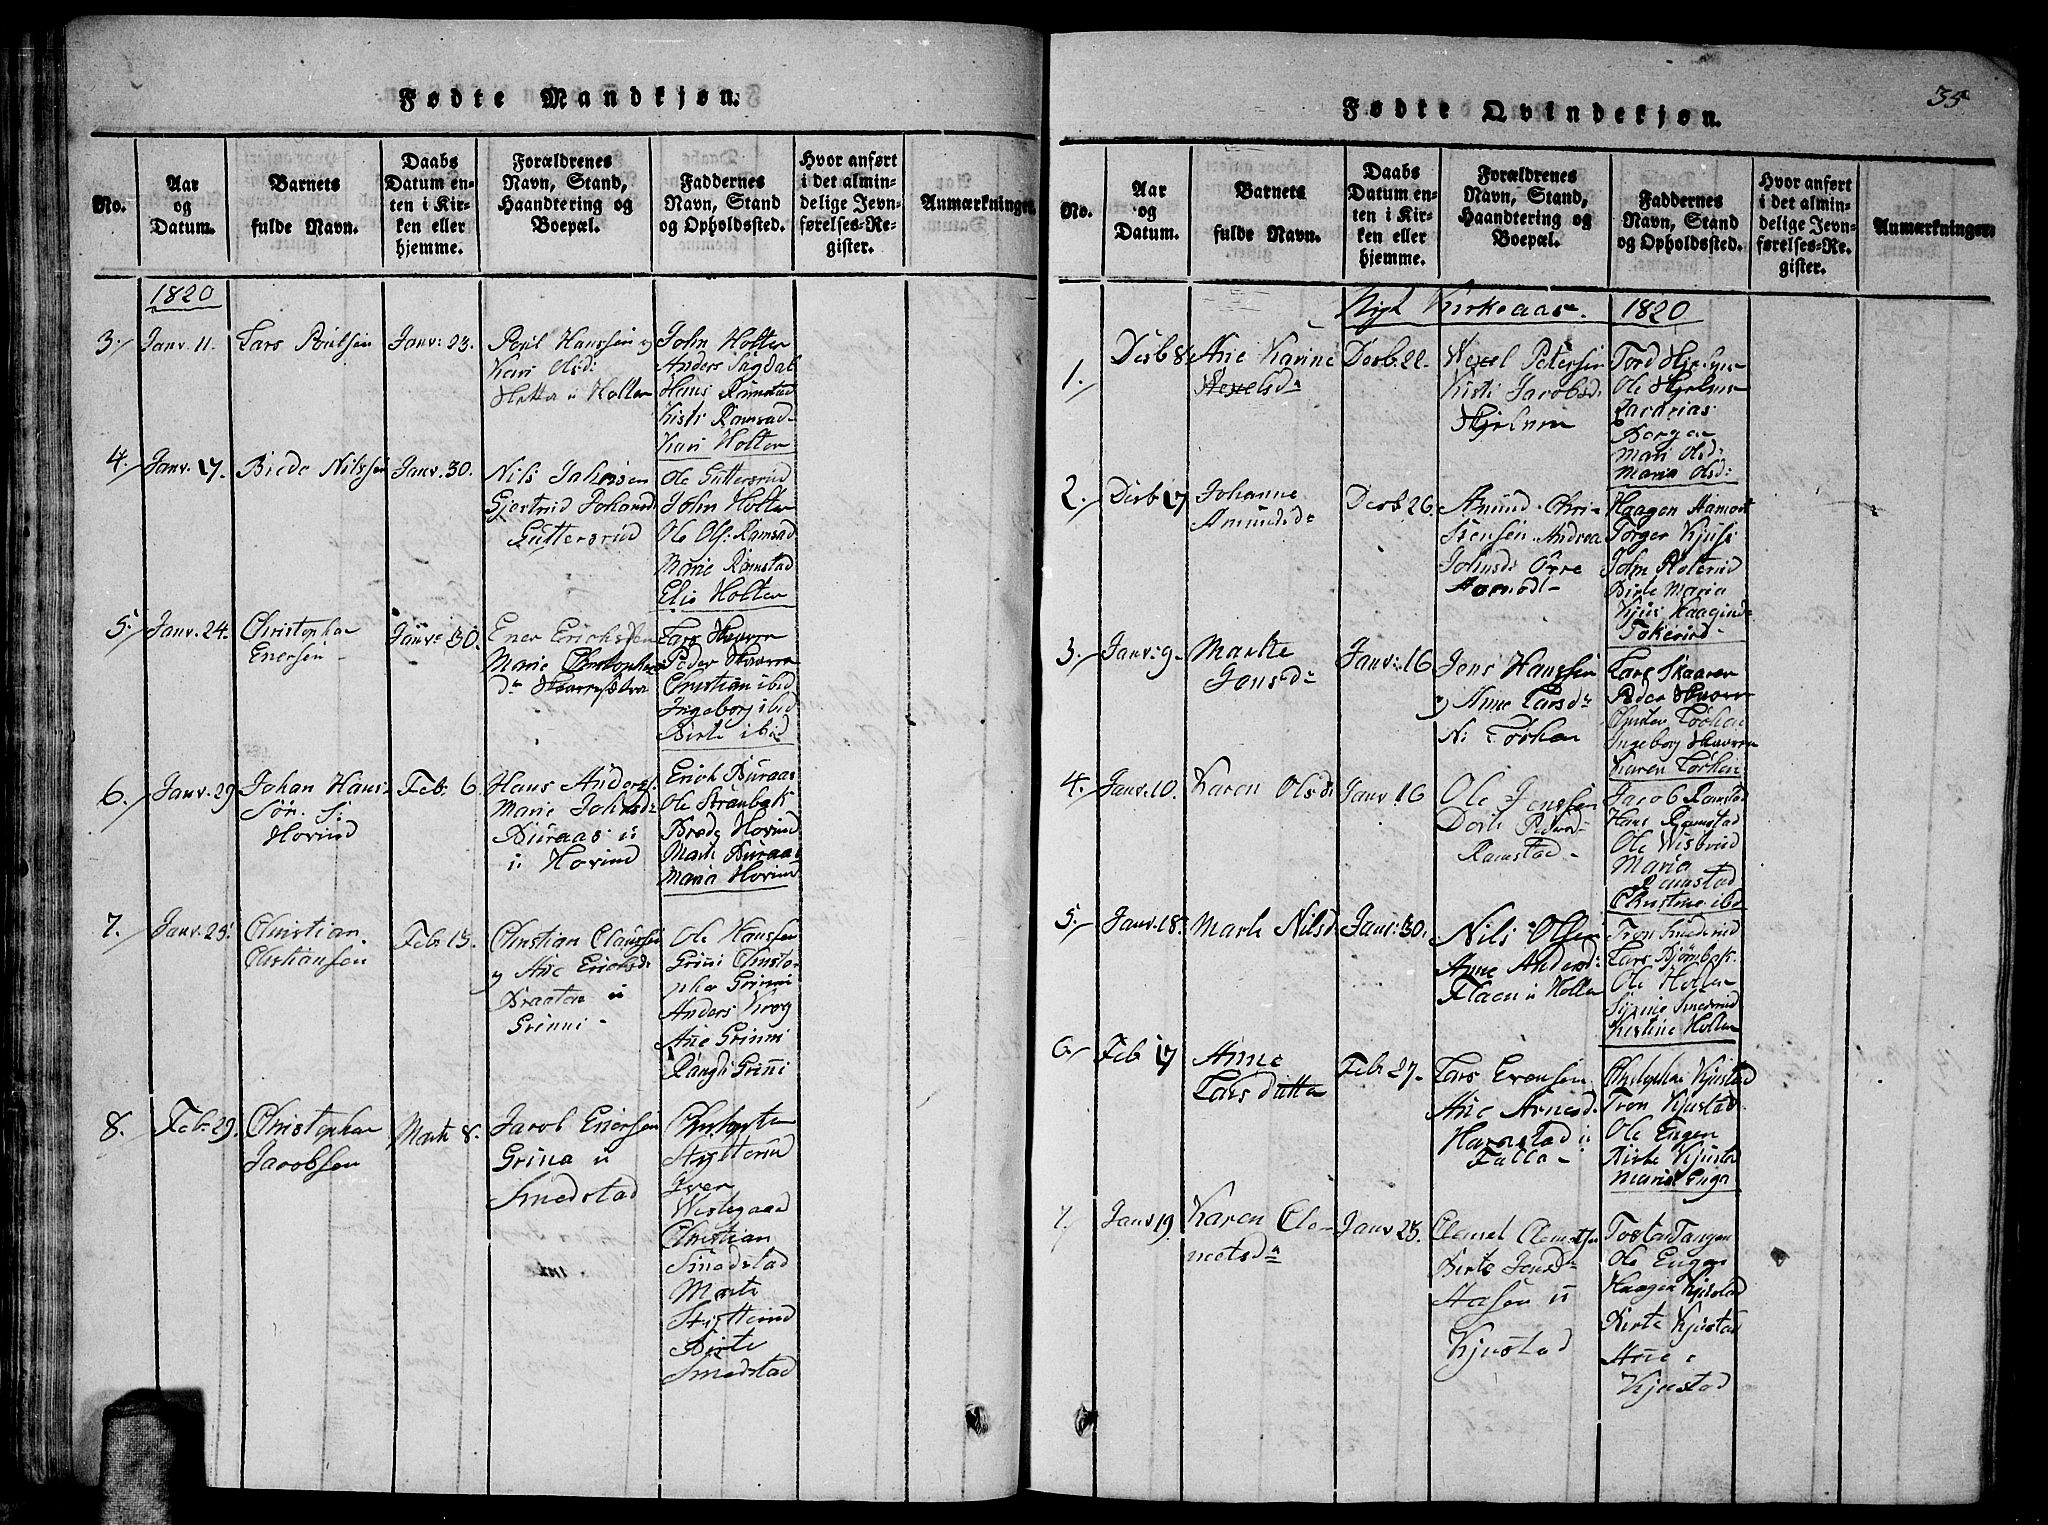 Fødte Mandkjøn.
No.
Aar
og
Datum.
Barnets
fulde Navn.
Daabs
Datum en-
ten i Kir-
ken eller
hjemme.
Forældrenes
Navn, Stand,
Haandtering og
Boepæl.
Faddernes
Navn, Stand
og Opholdssted.
Hvor anført
i det almin-
delige Jevn-
førelses-Re-
gister.
Anmærkninger.
1820
3.
Janv. 11.
Lars Poulsen
Janv: 23.
Poul Hanssen og
Kari Olsd:
Hetta u Holter
John Holter
Anders Sagdal
Hans Ramstad
Kisti Ramsad
Kari Holter
4.
Janv. 17.
Brede Nilssen
Janv. 30.
Nils Johnsen
Gjertrud Johansd
Guttersrud
Ole Guttersrud
John Holter
Ole Ols: Ramsad
Marie Ramstad
Elie Holter
5.
Janv. 24.
Christopher
Enersen
Janv: 30.
Ener Erichsen
Marie Christophers
dr Skarresætra
Lars Skarre
Peder Skarre
Christian ibid
Ingeborg ibid
Birte ibid
6.
Janv. 29
Johan Hans
Søn. S:
Hovind
Feb. 6.
Hans Anders:
Marie Johnsd:
Buraas u
u Hovind
Erich Buraas
Ole Strønbæk
Brede Hovind
Marte Buraas
Maria Hovind
7.
Janv. 25.
Christian
Christiansen
Feb 13.
Christian Claussen
og Ane Erichsd:
Braaten u
Grinni
Ole Hanssen
Grini Christo-
pher Grinni
Anders Krog
Ane Grinni
Rangli Grini
8.
Feb. 29.
Christopher
Jacobsen
Marti 8.
Jacob Enersen
Grina u
Smedstad
Christopher
Stytterud
Iver
Westegaard
Christian
Smedstad
Marte
Stytterud
Birte
Smedstad
35
Fødte Qvindekjøn.
No.
Aar
og
Datum.
Barnets
fulde Navn.
Daabs
Datum en-
ten i Kir-
ken eller
hjemme.
Forældrenes
Navn, Stand,
Haandtering og
Boepæl.
Faddernes
Navn, Stand
og Opholdssted.
Hvor anført
i det almin-
delige Jevn-
førelses-Re-
gister.
Anmærkninger.
Nyt Kirkeaar. 1820
1.
Desb 8.
Ane Karine
Wexelsdr
Desb. 22.
Wexel Petersen
Kisti Jacobsd:
Hjelmen
Tord Hjelmen
Ole Hjelmen
Zacharias
Bergen
Mari Olsd:
Maria Olsd:
2.
Desb. 17
Johanne
Amundsdr
Desb 26.
Amund Chri-
stensen Andrea
Johnsdr Øvre
Hamod
Haagen Hamod
Torger Kjus
John Roterud
Birte Maria
Kjus Haaginsd
Tokerud
3.
Janv: 9
Marthe
Jensdr
Janv: 16
Jens Hanssen
og Ane Larsdr
N: Torhen
Lars Skarren
Peder Skarre
Christen Torhen
Ingeborg Skarre
Karen Torhen
4.
Janv. 10.
Karen Olsd:
Janv 16
Ole Jenssen
Dorte Pedersd
Ramstad
Jacob Ramstad
Hans Ramstad
Ole Wisbrud
Maria
Ramstad
Christine ibid
5.
Janv. 18.
Marte Nilsd
Janv: 30.
Nils Olsen
Anne Andersd:
Flaen u Holter
Tron Smederud
Lars Bjørnbæk
Ole Holter
Syrine Smederud
Kirstine Holter
6.
Feb 17
Anne
Larsdatta
Feb 27.
Lars Evensen
Ane Arnesd:
Haverstad u
Falla
Christopher Kjustad
Tron Kjustad
Ole Engen
Birte Kjustad
Mari Enga
7.
Janv 19.
Karen Cle-
metsdr
Janv 23.
Clemet Clemetsen
Birte Jensdr
Aasen u
Kjustad
Tostar Tangen
Ole Engen
Haagen Kjustad
Birte Kjustad
Ane
Kjustad